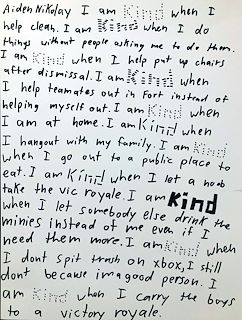 Aiden Nikolay I am Kind when I
help clean. I am Kind when I do
things without people asking me to do them.
I am Kind when I help put up chairs
after dismissal. I am Kind when
I help teamates out in Fort instead of
helping myself out. I am Kind when
I am at home. I am Kind when
I hangout with my family. I am Kind
when I go out to a public place to
eat. I am Kind when I let a noob
take the vic royale. I am Kind
when I let somebody else drink the
minies instead of me even if I
need them more. I am Kind when
I dont spit trash on xbox, I still
dont because im a good person. I
am Kind when I carry the boys
to a victory royale.